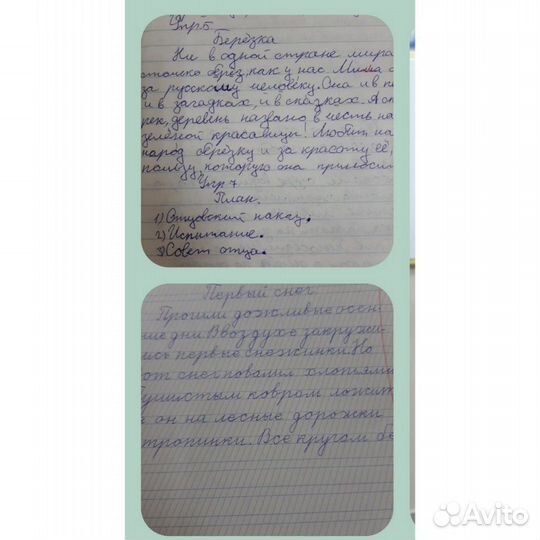 Упр.5.
Берёзка
Ни в одной стране мира
столько берёз, как у нас. Мила
за русскому человеку. Она и в
и в загадках, и в сказках. А
рек, деревень названо в честь на
зелёной красавицы! Любят на
народ берёзку и за красоту её,
пользу, которую она приносит
Упр 7
План.
1) Отцовский наказ.
2) Испытание.
3) Совет отца.
Первый снег
Прошли дождливые осен
ние дни. В воздухе закружи
ись первые снежинки. Но
от снег повалил хлопьями
Пушистым ковром ложит
он на лесные дорожки
тропинки. Всё кругом бе
Avito